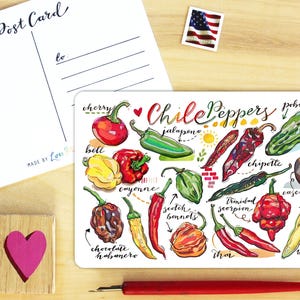 Post Card
to
MADE BY
Chile Peppers
cherry
jalapeño
bell
chipotle
cayenne
scotch
bonnets
Trinidad
scorpion
chocolate
habanero
Thai